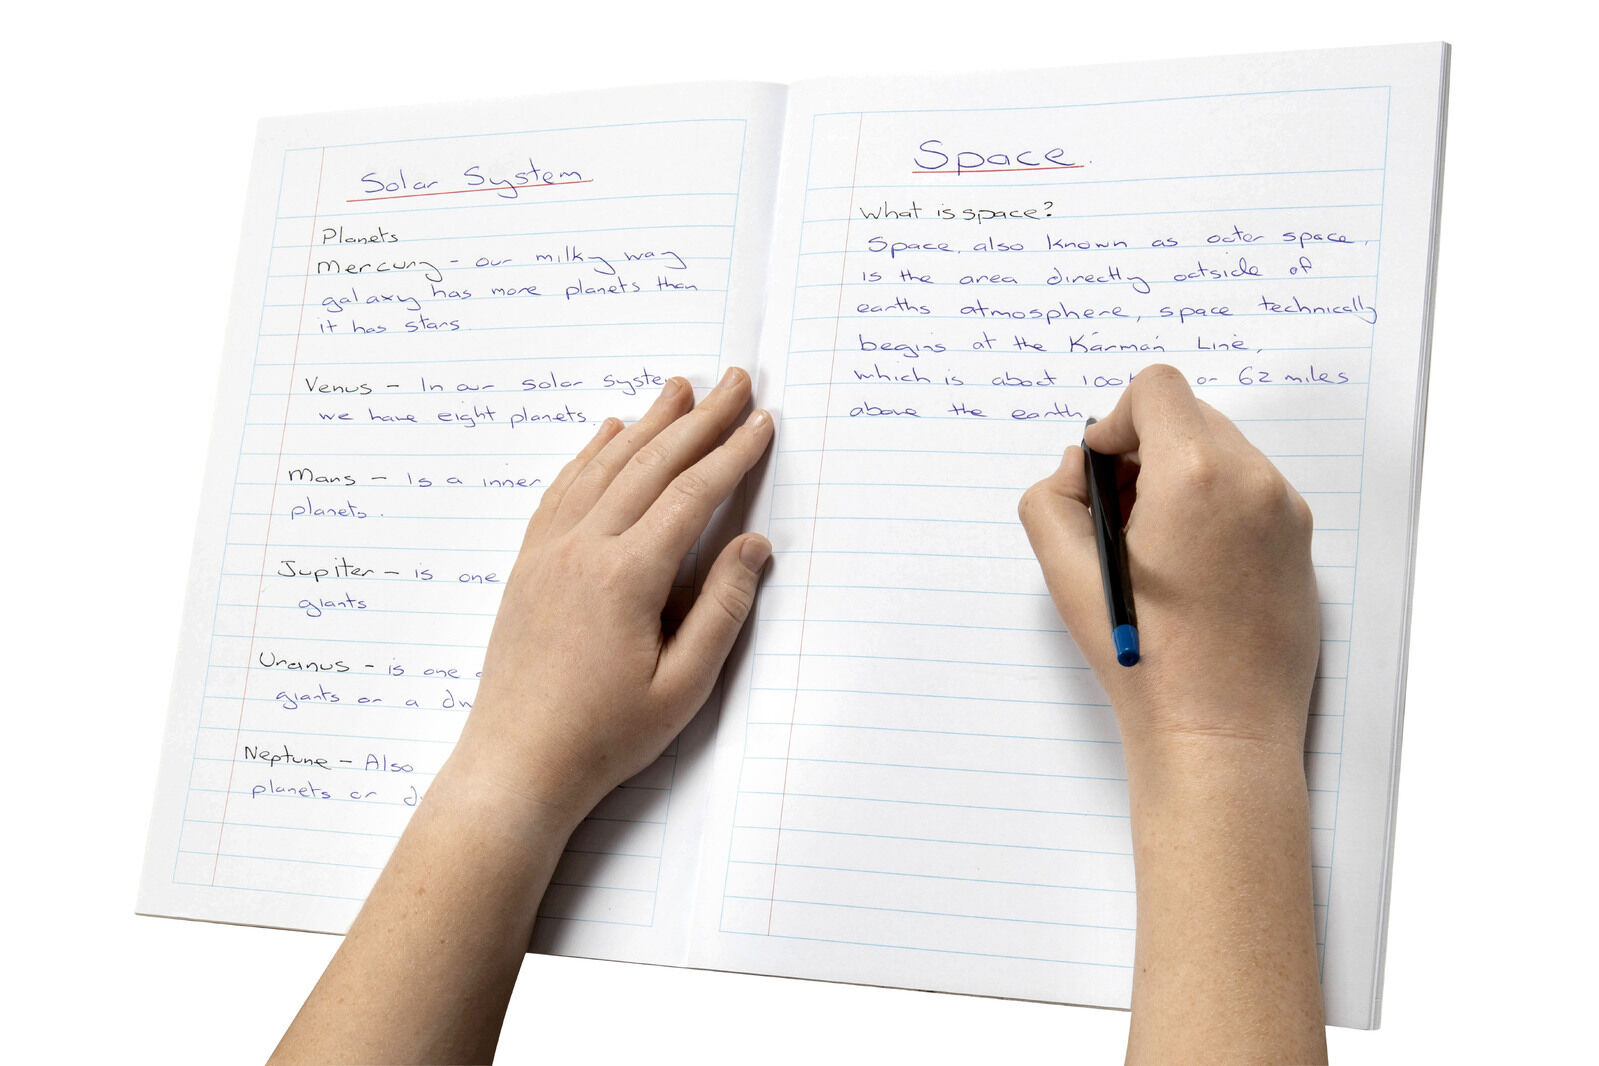 Solar System
Planets
Mercury - our milky way
galaxy has more planets than
it has stars.
Venus - In our solar system
we have eight planets.
Mars - Is a inner
planets.
Jupiter - is one
giants
Uranus - is one
giants or a
Neptune - Also
planets or
Space.
What is space?
Space, also known as outer space,
is the area directly outside of
earths atmosphere, space technically
begins at the Kármán Line,
which is about 100 or 62 miles
above the earth